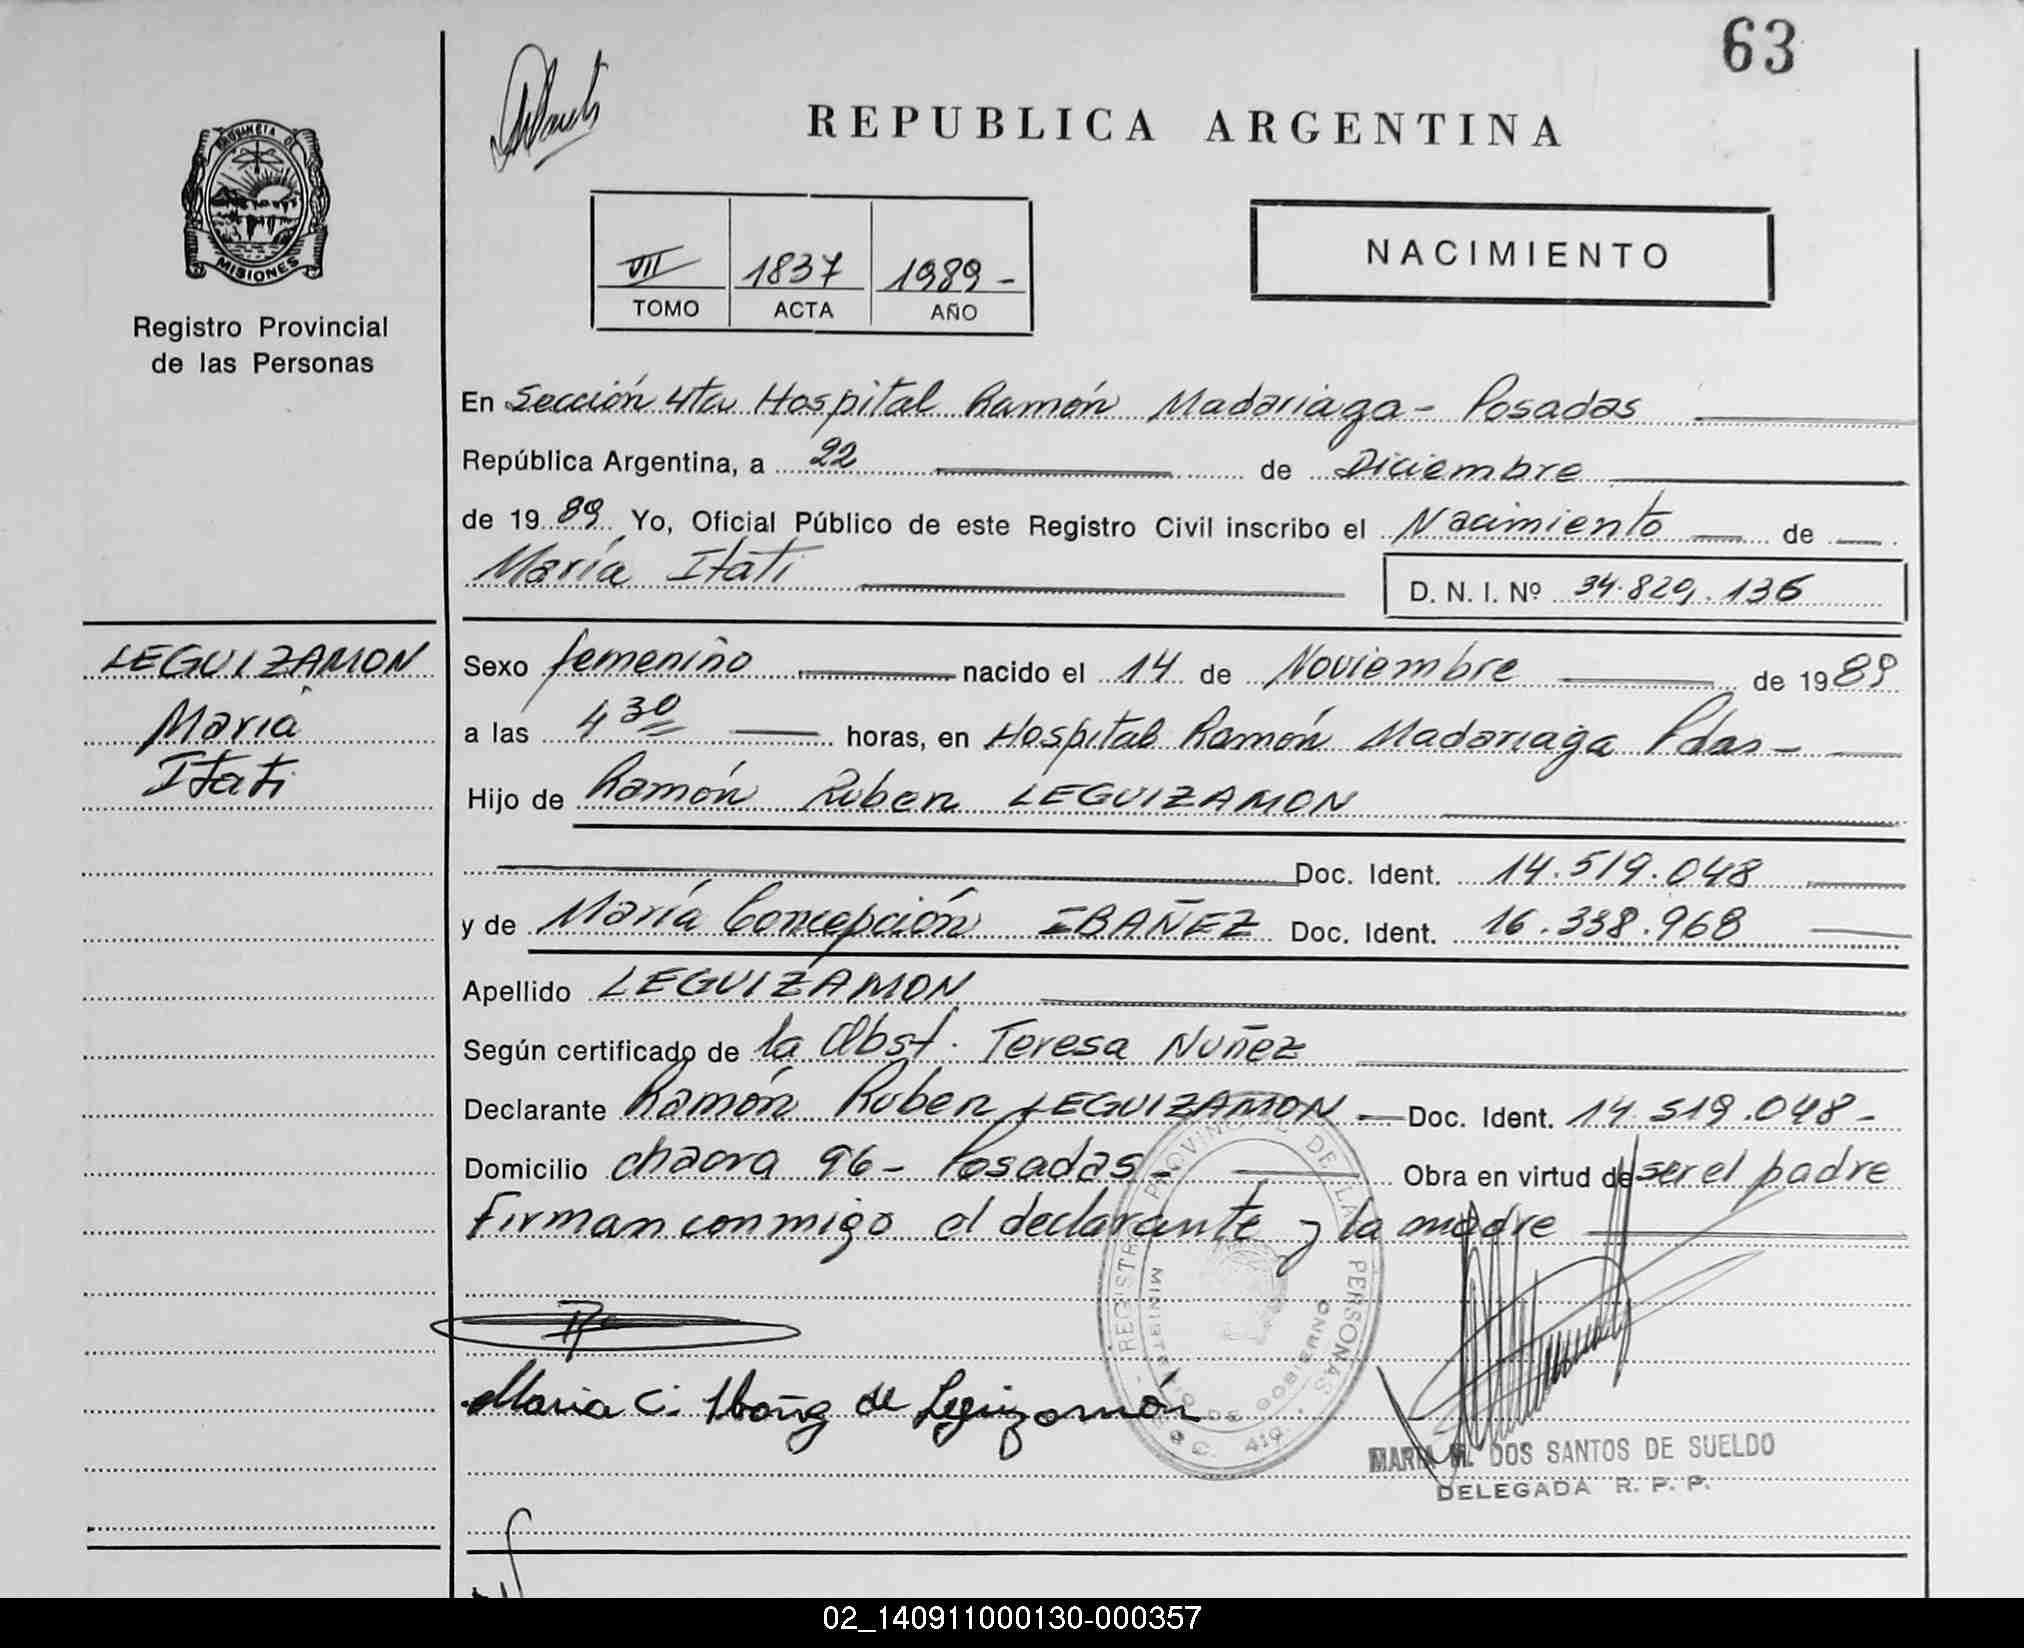 63
REPUBLICA ARGENTINA
PROVINCIA DE
MISIONES
Registro Provincial
de las Personas
VII 1837 1989-
TOMO ACTA AÑO
NACIMIENTO
En Sección 4ta Hospital Ramón Madariaga - Posadas
República Argentina, a 22 de Diciembre
de 1989 Yo, Oficial Público de este Registro Civil inscribo el Nacimiento de
María Itati D. N. I. Nº 34.829.136
LEGUIZAMON
María
Itati
Sexo femenino nacido el 14 de Noviembre de 1989
a las 4 30 horas, en Hospital Ramón Madariaga Pdas-
Hijo de Ramón Ruben LEGUIZAMON
Doc. Ident. 14.519.048
y de María Concepción IBAÑEZ Doc. Ident. 16.338.968
Apellido LEGUIZAMON
Según certificado de la Obst. Teresa Nuñez
Declarante Ramón Ruben LEGUIZAMON - Doc. Ident. 14.519.048-
Domicilio chacra 96- Posadas- Obra en virtud de ser el padre
Firman conmigo el declarante y la madre
REGISTRO PROVINCIAL DE LAS PERSONAS
MINISTERIO DE GOBIERNO
Maria C. Ibañez de Leguizamón
MARIA M. DOS SANTOS DE SUELDO
DELEGADA R. P. P.
02_140911000130-000357